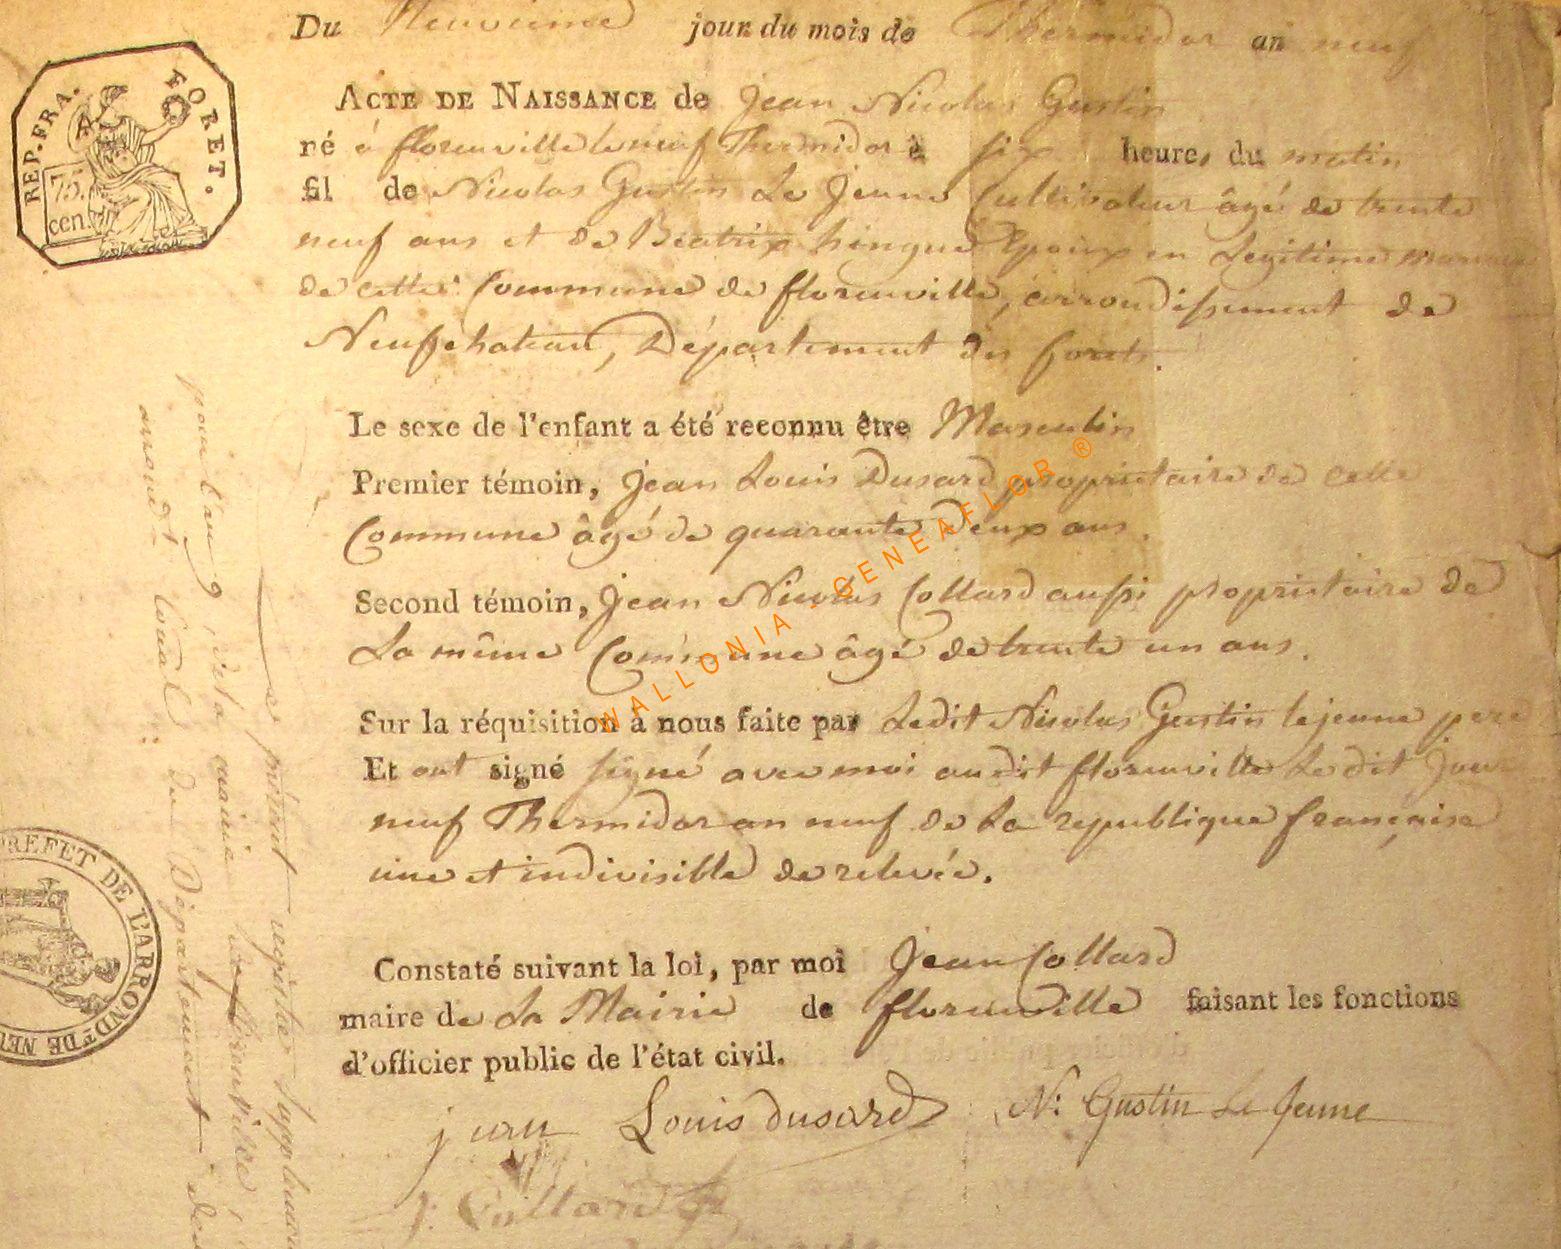 Du Neuvieme jour du mois de Thermidor an neuf
REP. FRA.
FORET.
75.
cen.
ACTE DE NAISSANCE de Jean Nicolas Gustin
né à florenville le neuf Thermidor à six heures du matin
fil de Nicolas Gustin Le Jeune Cultivateur âgé de trente
neuf ans et de Beatrix hingue Epoux en Legitime mariage
de cette Commune de florenville, arrondissement de
Neufchateau, Département des forets.
Le sexe de l'enfant a été reconnu être Masculin
Premier témoin, Jean Louis Dusard proprietaire de cette
Commune âgé de quarante Deux ans.
Second témoin, Jean Nicolas Collard aussi proprietaire de
La même Commune âgé de trente un ans.
Sur la réquisition à nous faite par Ledit Nicolas Gustin le jeune pere
Et ont signé signé avec moi au dit florenville Le dit Jour
neuf Thermidor an neuf de La republique française
une et indivisible de relevée.
Constaté suivant la loi, par moi Jean Collard
maire de La Mairie de florenville faisant les fonctions
d'officier public de l'état civil.
jean Louis dusard N: Gustin Le Jeune
J: Collard
WALLONIA - GENEAFLOR ®
PREFET DE L'ARROND.T DE NEU
Le présent registre
pour l'an 9 de la mairie de florenville
du Département des